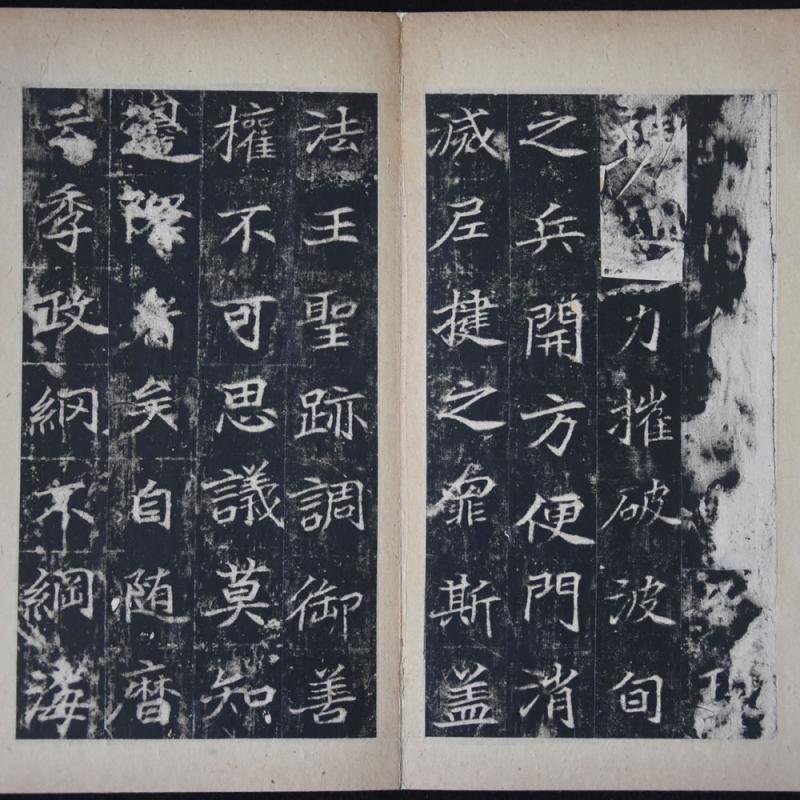 力摧破波旬
之兵開方便門消
滅尼揵之辠斯盖
法王聖跡調御善
權不可思議莫知
邊際者矣自随曆
云季政網不綱海